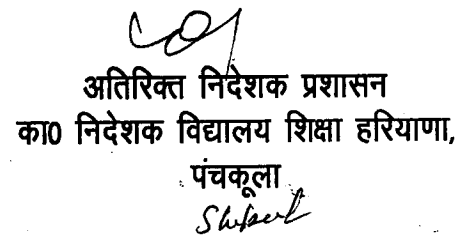 अतिरिक्त निदेशक प्रशासन
का0 निदेशक विद्यालय शिक्षा हरियाणा,
पंचकूला